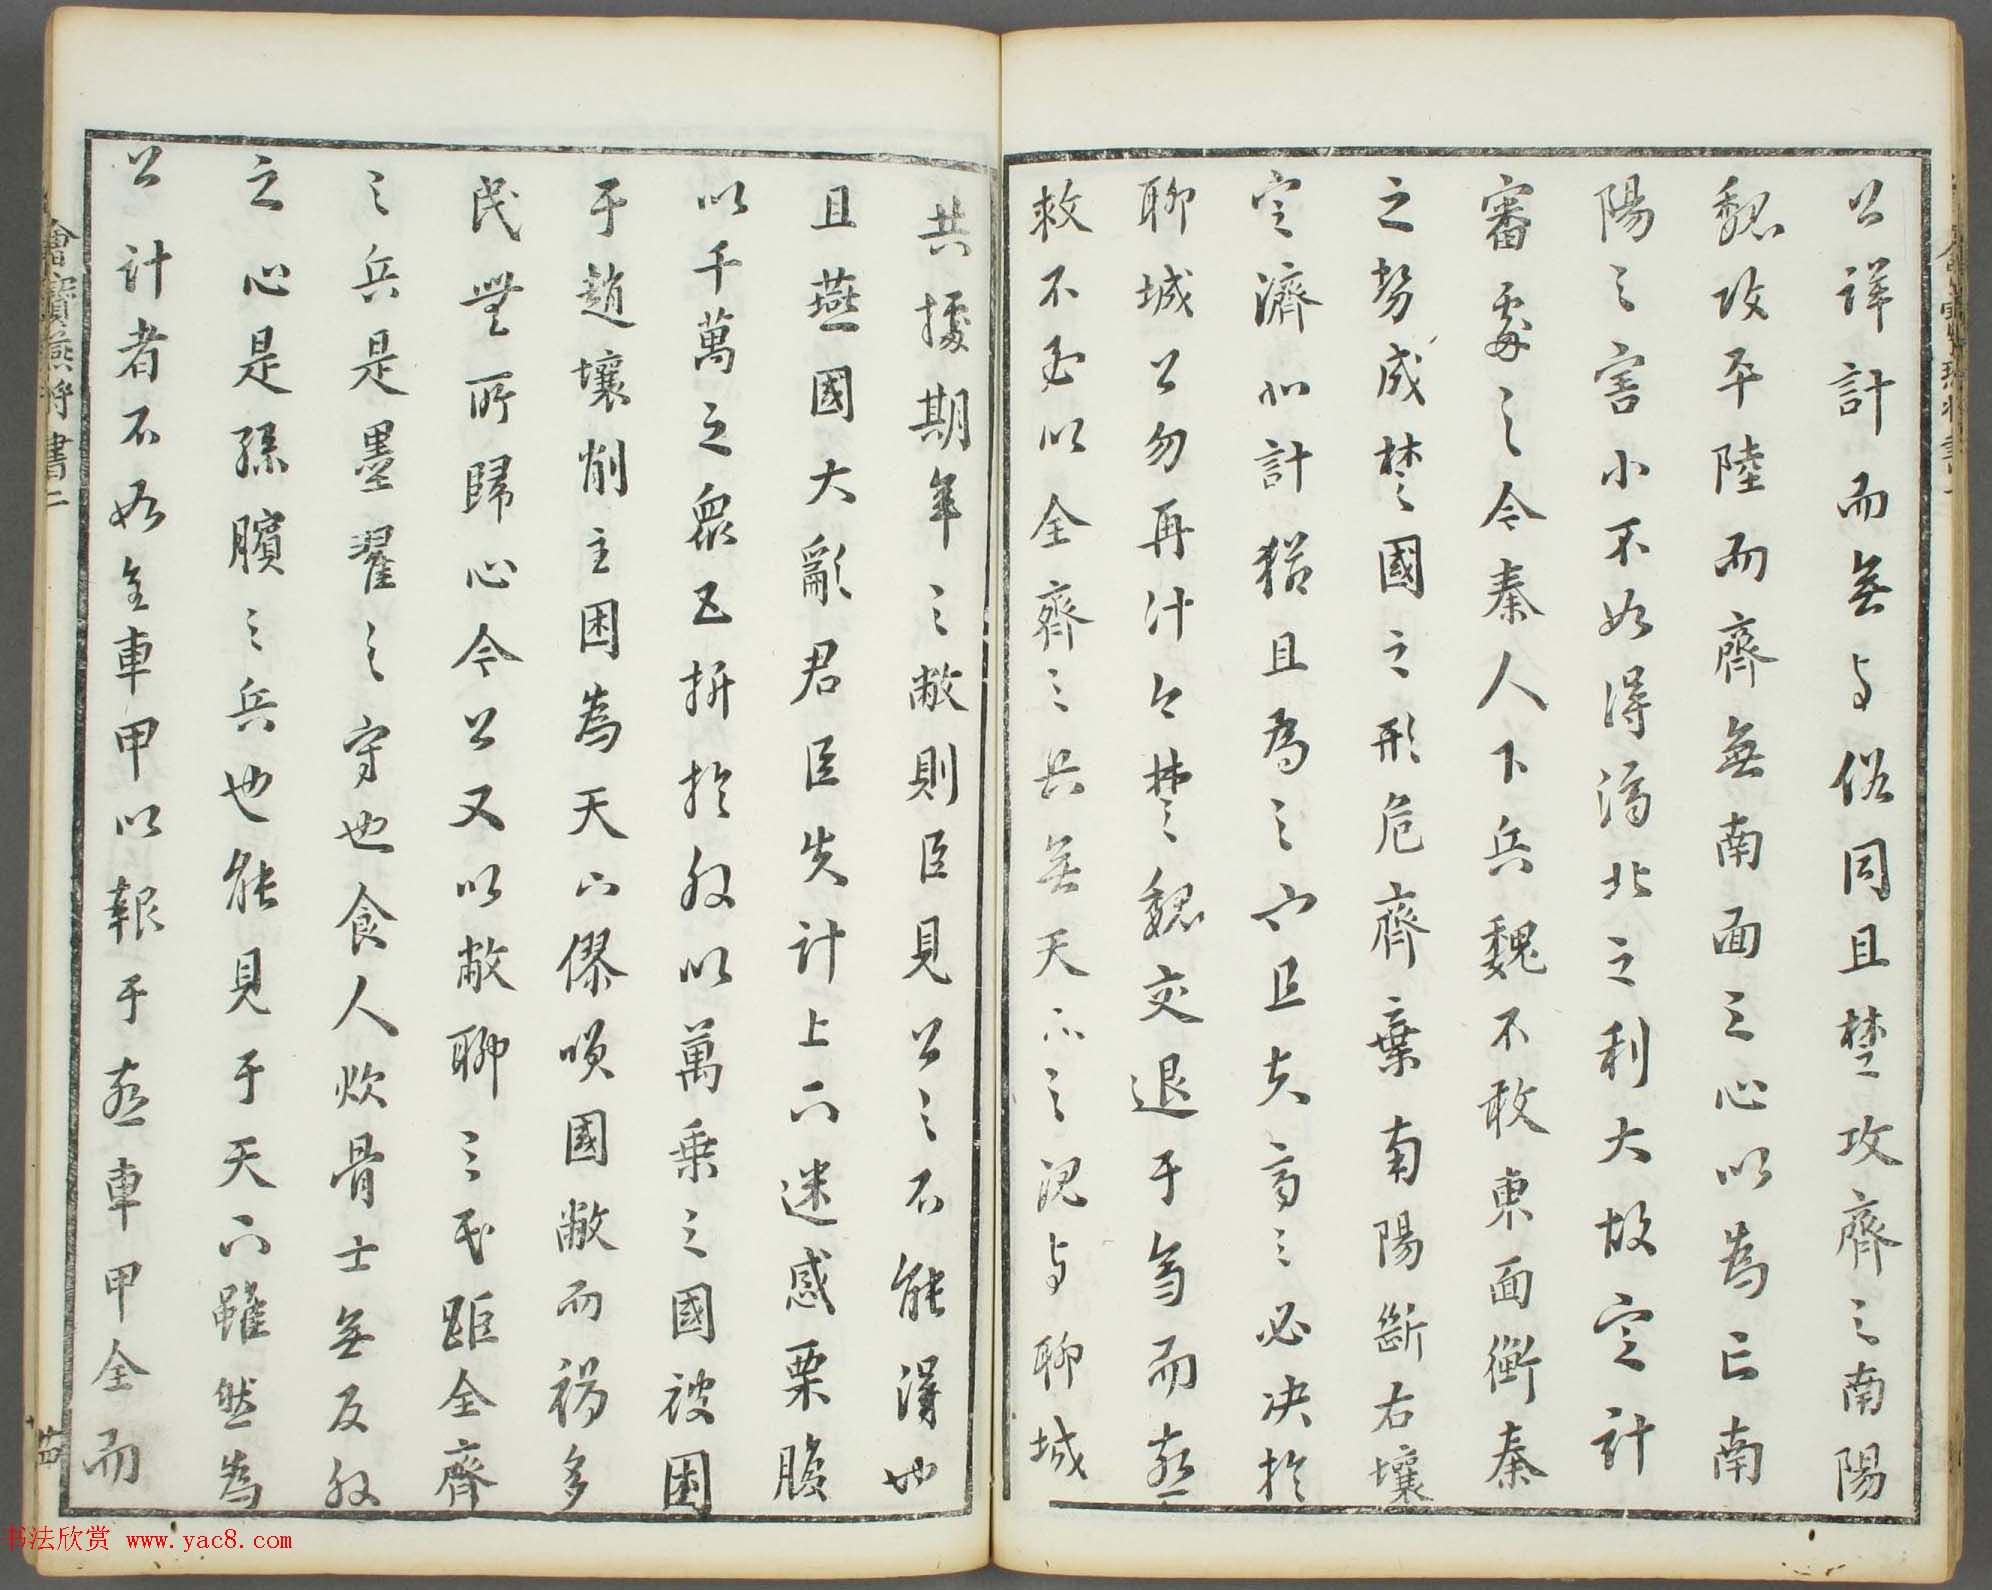 公詳計而無与俗同且楚攻齊之南陽
魏攻平陸而齊無南面之心以為亡南
陽之害小不如得濟北之利大故定計
審處之今秦人下兵魏不敢東面衡秦
之勢成楚國之形危齊棄南陽斷右壤
定濟北計猶且為之也且夫齊之必决於
聊城公勿再计今楚魏交退于齊而燕
救不至以全齊之兵無天下之规与聊城
共據期年之敝則臣見公之不能得也
且燕國大亂君臣失计上下迷惑栗腹
以千萬之衆五折於外以萬乘之國被困
于趙壤削主困為天下僇唉國敝而禍多
民無所歸心今公又以敝聊之民距全齊
之兵是墨翟之守也食人炊骨士無反外
之心是孫臏之兵也能見于天下雖然為
公計者不如全車甲以報于燕車甲全而
會寶燕將書二
卄四
书法欣赏 www.yac8.com